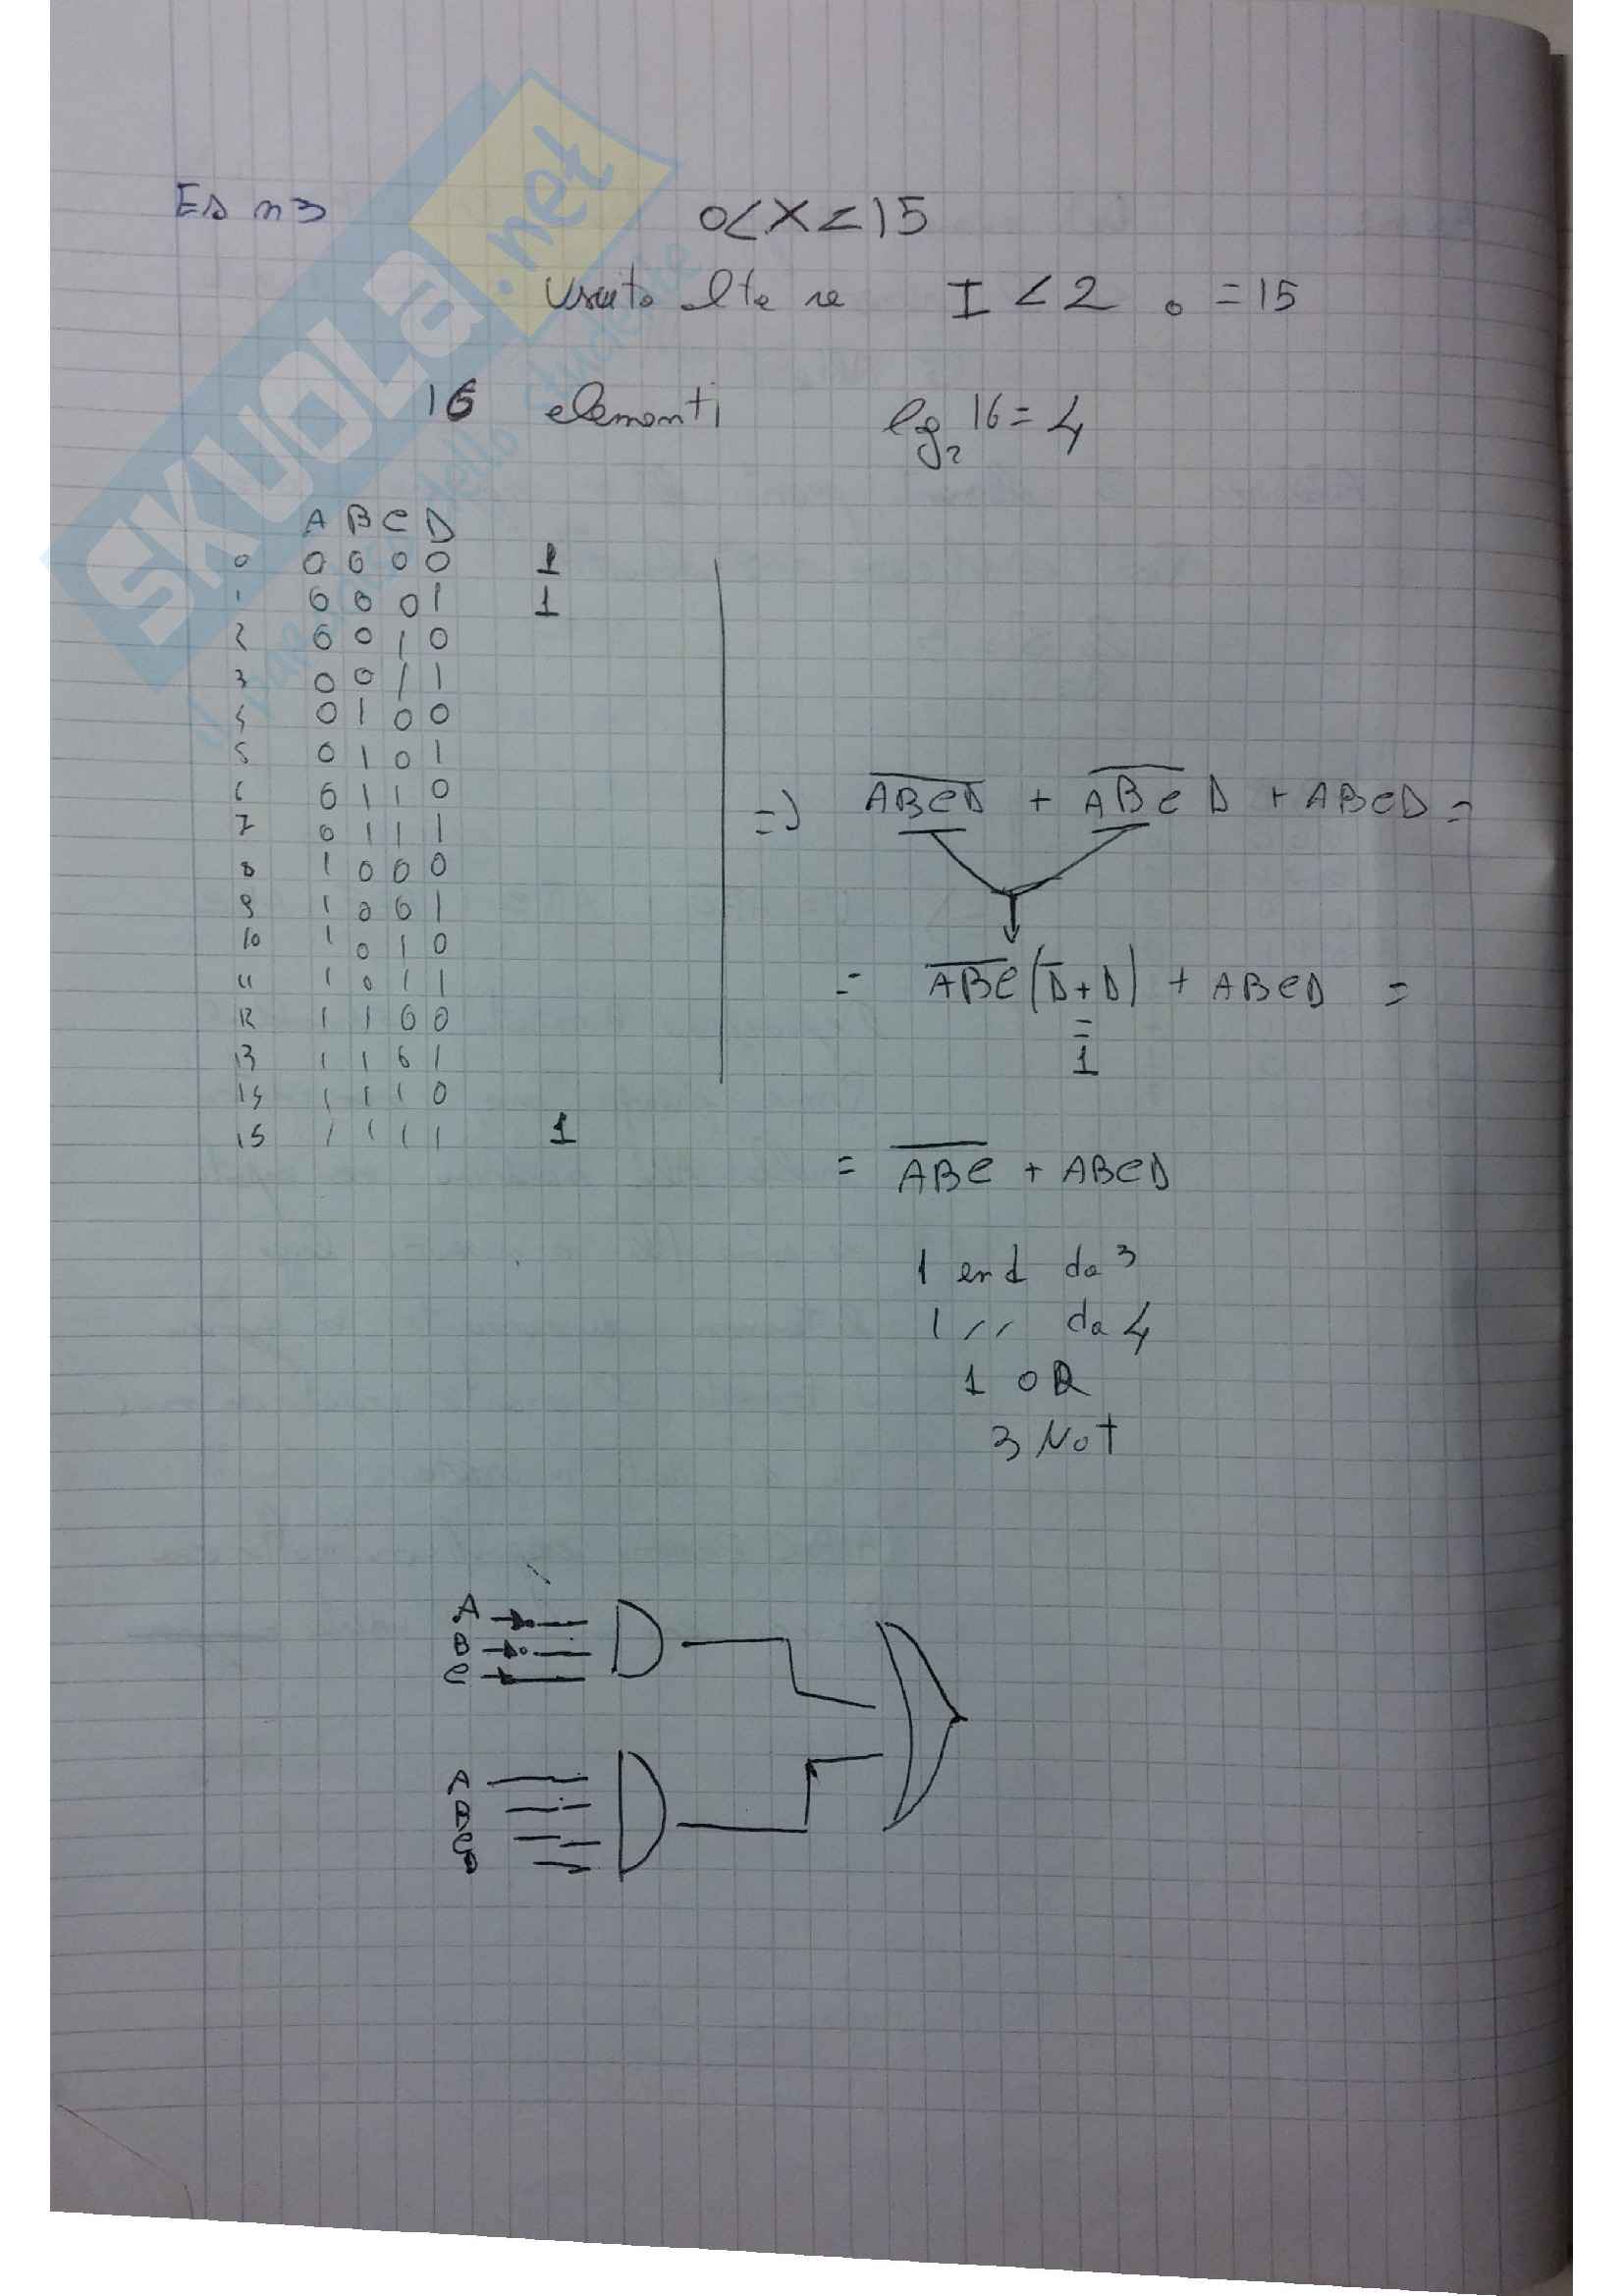 Es n3
0<X<15
SKUOLA.net
Uscita alta se I <2 o =15
16 elementi lg₂ 16=4
A B C D
0 0 0 0 0 1
1 0 0 0 1 1
2 0 0 1 0
3 0 0 1 1
4 0 1 0 0
5 0 1 0 1
6 0 1 1 0
7 0 1 1 1
8 1 0 0 0
9 1 0 0 1
10 1 0 1 0
11 1 0 1 1
12 1 1 0 0
13 1 1 0 1
14 1 1 1 0
15 1 1 1 1 1
=> A̅B̅C̅D̅ + A̅B̅C̅ D + ABCD =
= A̅B̅C̅(D̅+D) + ABCD =
= 1
= A̅B̅C̅ + ABCD
1 and da 3
1 // da 4
1 OR
3 Not
A
B
C
A
B
C
D